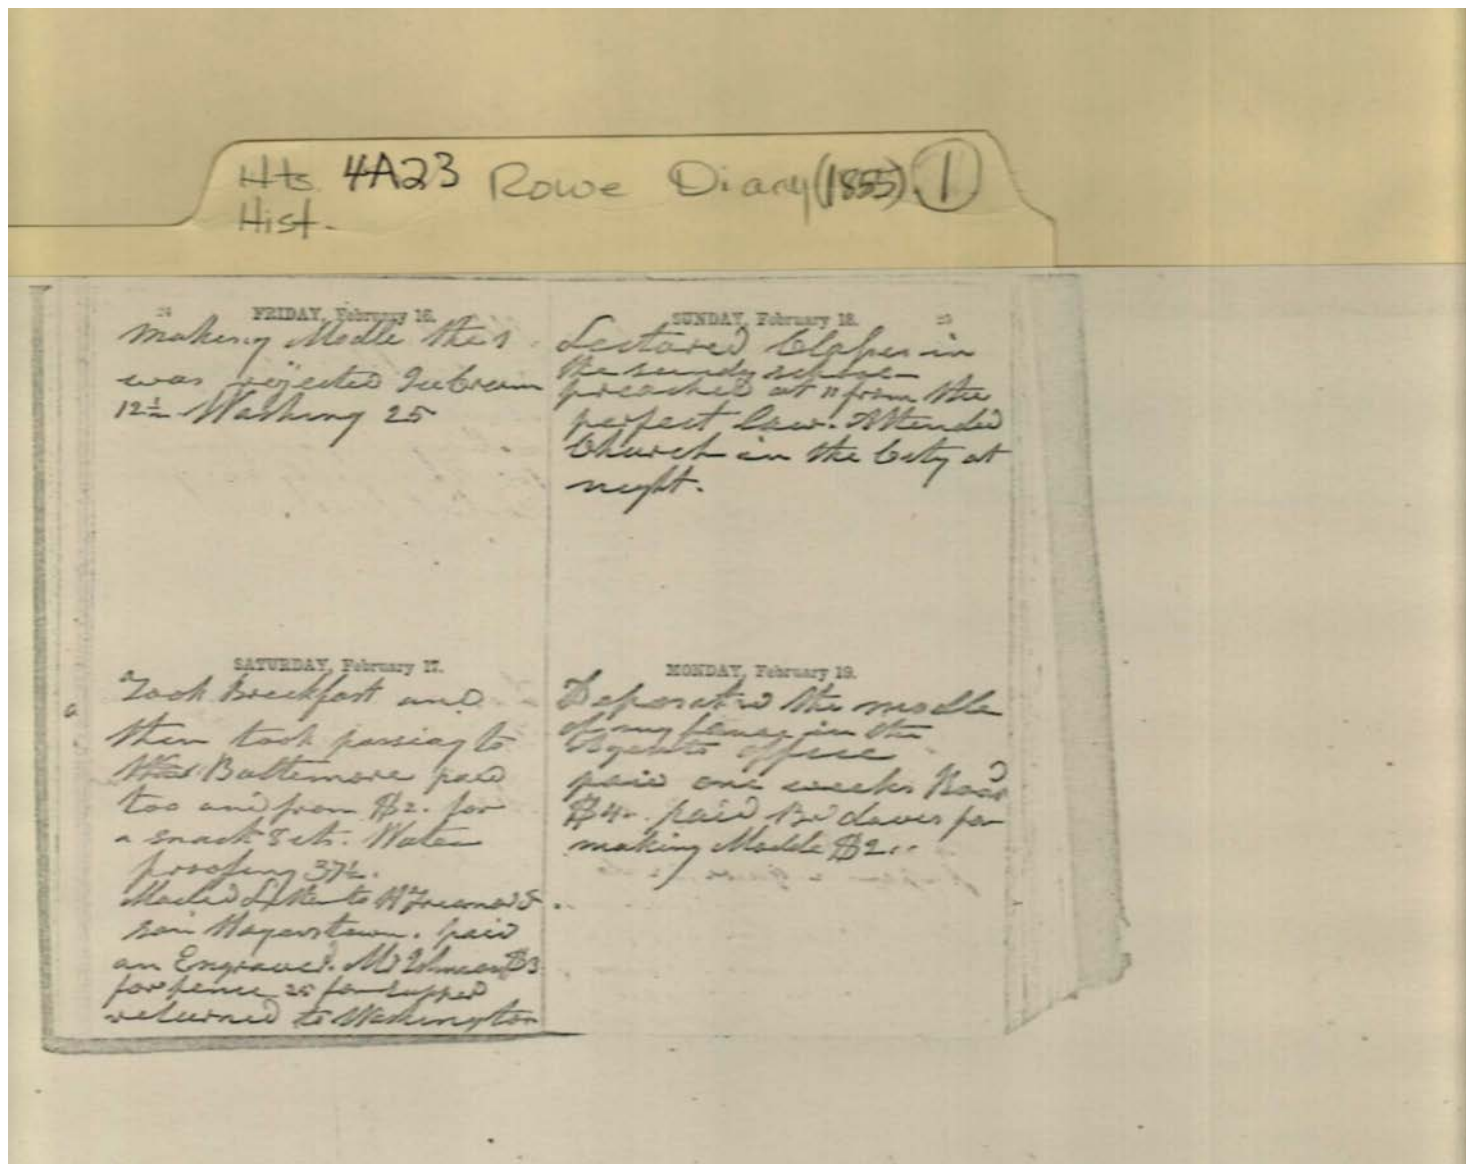 Hts. 4A23 Rowe Diary (1855) 1
Hist.
24 FRIDAY, February 16.
making Modle this
was rejected Icecream
12½ Washing 25
SATURDAY, February 17.
Took Breekfast and
then took passiag to
Baltemore paid
too and from $2. for
a snack 8 cts. Water
proofing 37½.
Mailed Letter to
son Hagerstown. paid
an Engraver. Mr $3
for fence 25 for supper
returned to Washington
SUNDAY, February 18. 25
Lectured Clases in
the sunday school
preached at 11 from the
perfect law. Attended
Church in the City at
night.
MONDAY, February 19.
Deposated the modle
of my fence in the
Agents office
paid one weeks Boad
$4. paid Br daves for
making Modle $2..